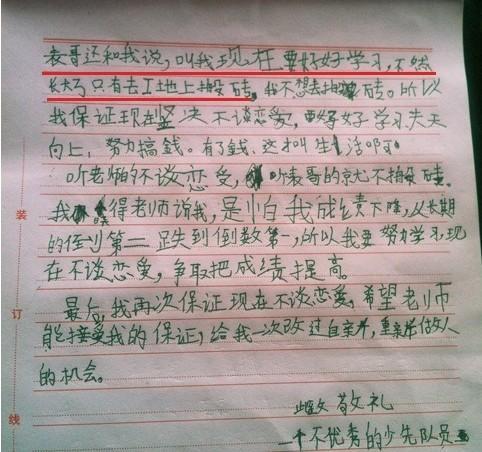 表哥还和我说，叫我现在要好好学习，不然
长大了只有去工地上搬砖。我不想去搬砖。所以
我保证现在坚决不谈恋爱，要好好学习天天
向上，努力搞錢。有了錢，这叫生活啊
听老师的不谈恋爱，听表哥的京尤不搬砖。
我得老师说我，是怕我成绩下降，从长期
的倒第二跌到倒数第一，所以我要努力学习，现
在不谈恋爱，争取把成绩提高。
最后，我再次保证现在不谈恋爱，希望老师
能接受我的保证，给我一次改过自新，重新做人
的机会。
敬礼
一个不优秀的少先队员
装
订
线